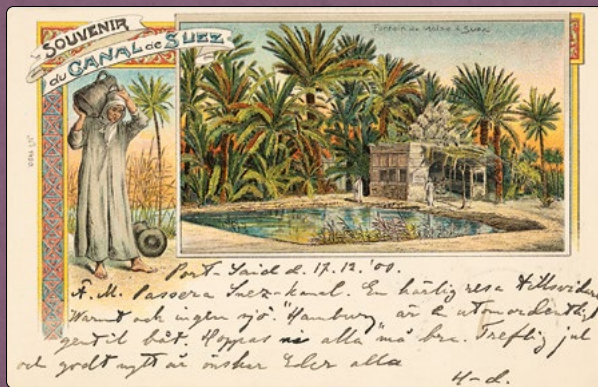 SOUVENIR
du CANAL de SUEZ
Fontain de Moïse à Suez
Port-Said d. 17.12.'00.
F. M. Passera Suez-kanal. En härlig resa tillsvidare
Varmt och ingen sjö. "Hamburg" är en utomordentligt
gentil båt. Hoppas ni alla må bra. Treflig jul
och godt nytt år önskar Eder alla
H-d.